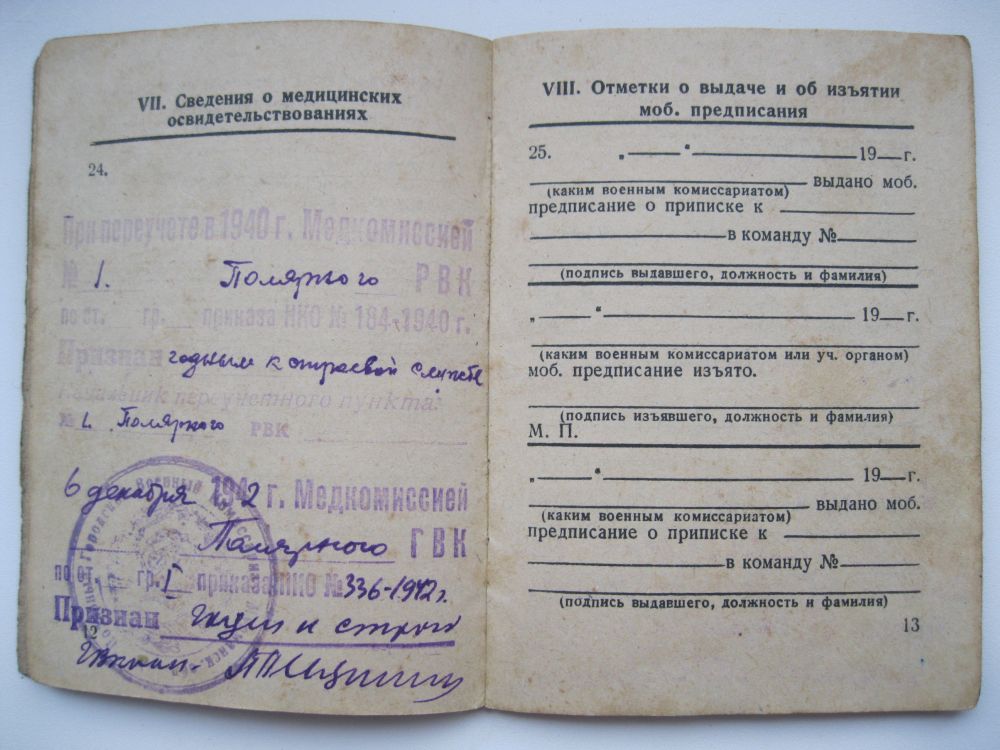 VII. Сведения о медицинских
освидетельствованиях
24.
При переучете в 1940 г. Медкомиссией
№ 1. Полярного РВК
по ст. гр. приказа НКО № 184-1940 г.
Признан годным к строевой службе
Начальник переучетного пункта:
№ 1. Полярного РВК
6 декабря 1942 г. Медкомиссией
Полярного ГВК
по ст. гр. I приказа НКО № 336-1942 г.
Признан
12
VIII. Отметки о выдаче и об изъятии
моб. предписания
25. „ — “ — 19—г.
выдано моб.
(каким военным комиссариатом)
предписание о приписке к
в команду №
(подпись выдавшего, должность и фамилия)
„ — “ — 19—г.
(каким военным комиссариатом или уч. органом)
моб. предписание изъято.
(подпись изъявшего, должность и фамилия)
М. П.
„ — “ — 19—г.
выдано моб.
(каким военным комиссариатом)
предписание о приписке к
в команду №
(подпись выдавшего, должность и фамилия)
13